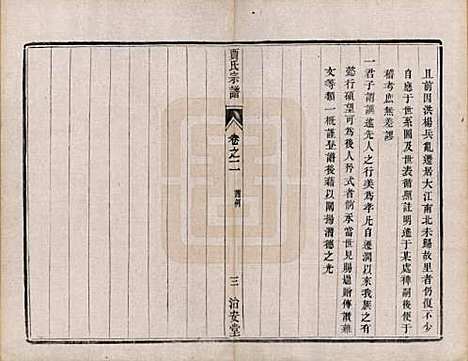 且前因洪楊兵亂遷居大江南北未歸故里者仍復不少
自應于世系圖及世表備照註明遷于某處裨嗣後便于
稽考庶無差謬
一君子謂譔述先人之行美為孝凡自遷潤以來我族之有
懿行碩望可為後人矜式者前承當世見賜爐贈傳讚雜
文等類一概謹登譜後藉以闡揚潛德之光
賈氏宗譜
卷之二
凡例
三
治安堂